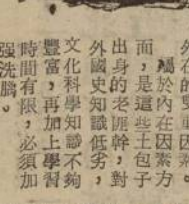 屬於內在因素方
面，是這些土包子
出身的老匪幹，對
外國史知識低劣，
文化科學知識不夠
豐富，再加上學習
時間有限，必須加
强洗腦。